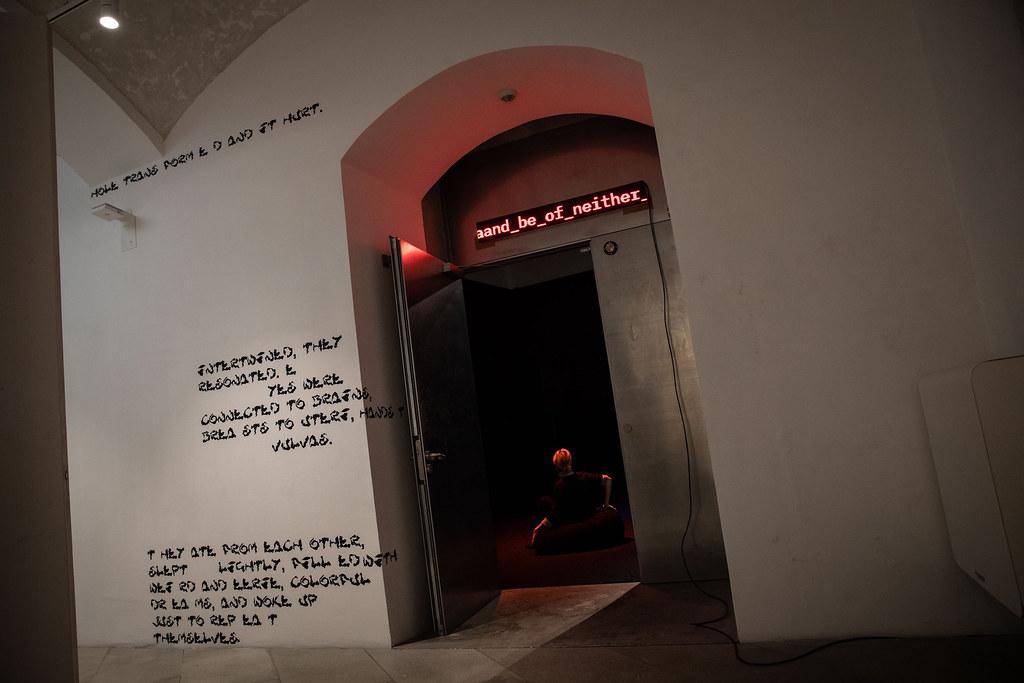 HOLE TRANS FORM E D AND IT HURT.
aand_be_of_neither_
INTERTWINED, THEY
RESONATED. E
YES WERE
CONNECTED TO BRAINS,
BREA STS TO STERI, HANDS T
VULVAS.
T HEY ATE FROM EACH OTHER,
SLEPT LIGHTLY, FILL ED WITH
WEI RD AND EERIE, COLORFUL
DR EA MS, AND WOKE UP
JUST TO REP EA T
THEMSELVES